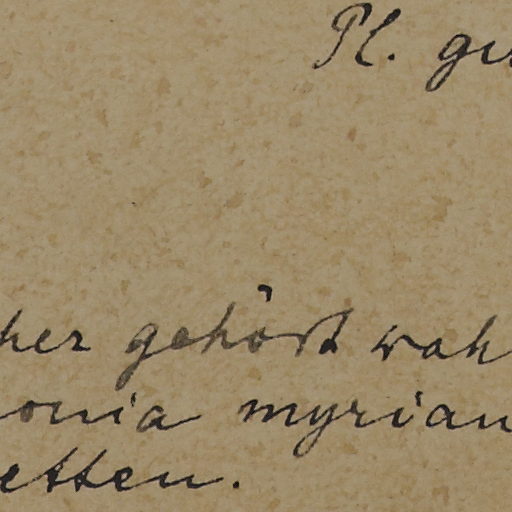 Pl. gu
her gehört wah
onia myrian
etten.